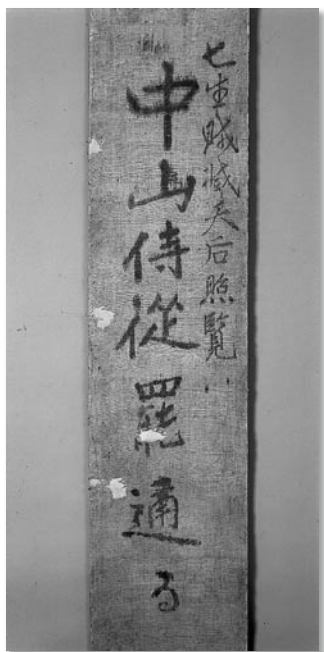 七生賊滅天后照覽
中山侍從罷通る